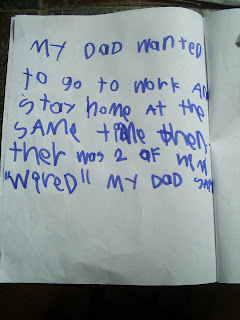 MY DAD wanted
to go to work AN
stay home At the
SAMe time then
ther was 2 of hem
"Wered" MY DAD SAY